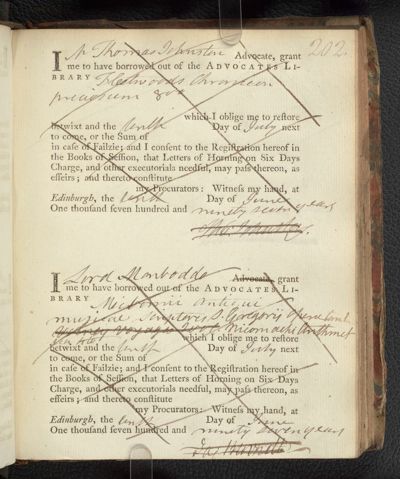 202
I Mr Thomas Johnston Advocate, grant
me to have borrowed out of the ADVOCATES LI-
BRARY Fleetwoods Chronicon
preciosum 8vo
which I oblige me to restore
betwixt and the tenth Day of July next
to come, or the Sum of
in case of Failzie; and I consent to the Registration hereof in
the Books of Session, that Letters of Horning on Six Days
Charge, and other executorials needful, may pass thereon, as
effeirs; and thereto constitute
my Procurators: Witness my hand, at
Edinburgh, the tenth Day of June
One thousand seven hundred and ninety seven years
I Lord Monboddo Advocate, grant
me to have borrowed out of the ADVOCATES LI-
BRARY Meibomii antiquae
musicae Scriptores S. Gregorii opera
Nicomachi Arithmet
which I oblige me to restore
betwixt and the tenth Day of July next
to come, or the Sum of
in case of Failzie; and I consent to the Registration hereof in
the Books of Session, that Letters of Horning on Six Days
Charge, and other executorials needful, may pass thereon, as
effeirs; and thereto constitute
my Procurators: Witness my hand, at
Edinburgh, the tenth Day of June
One thousand seven hundred and ninety seven years